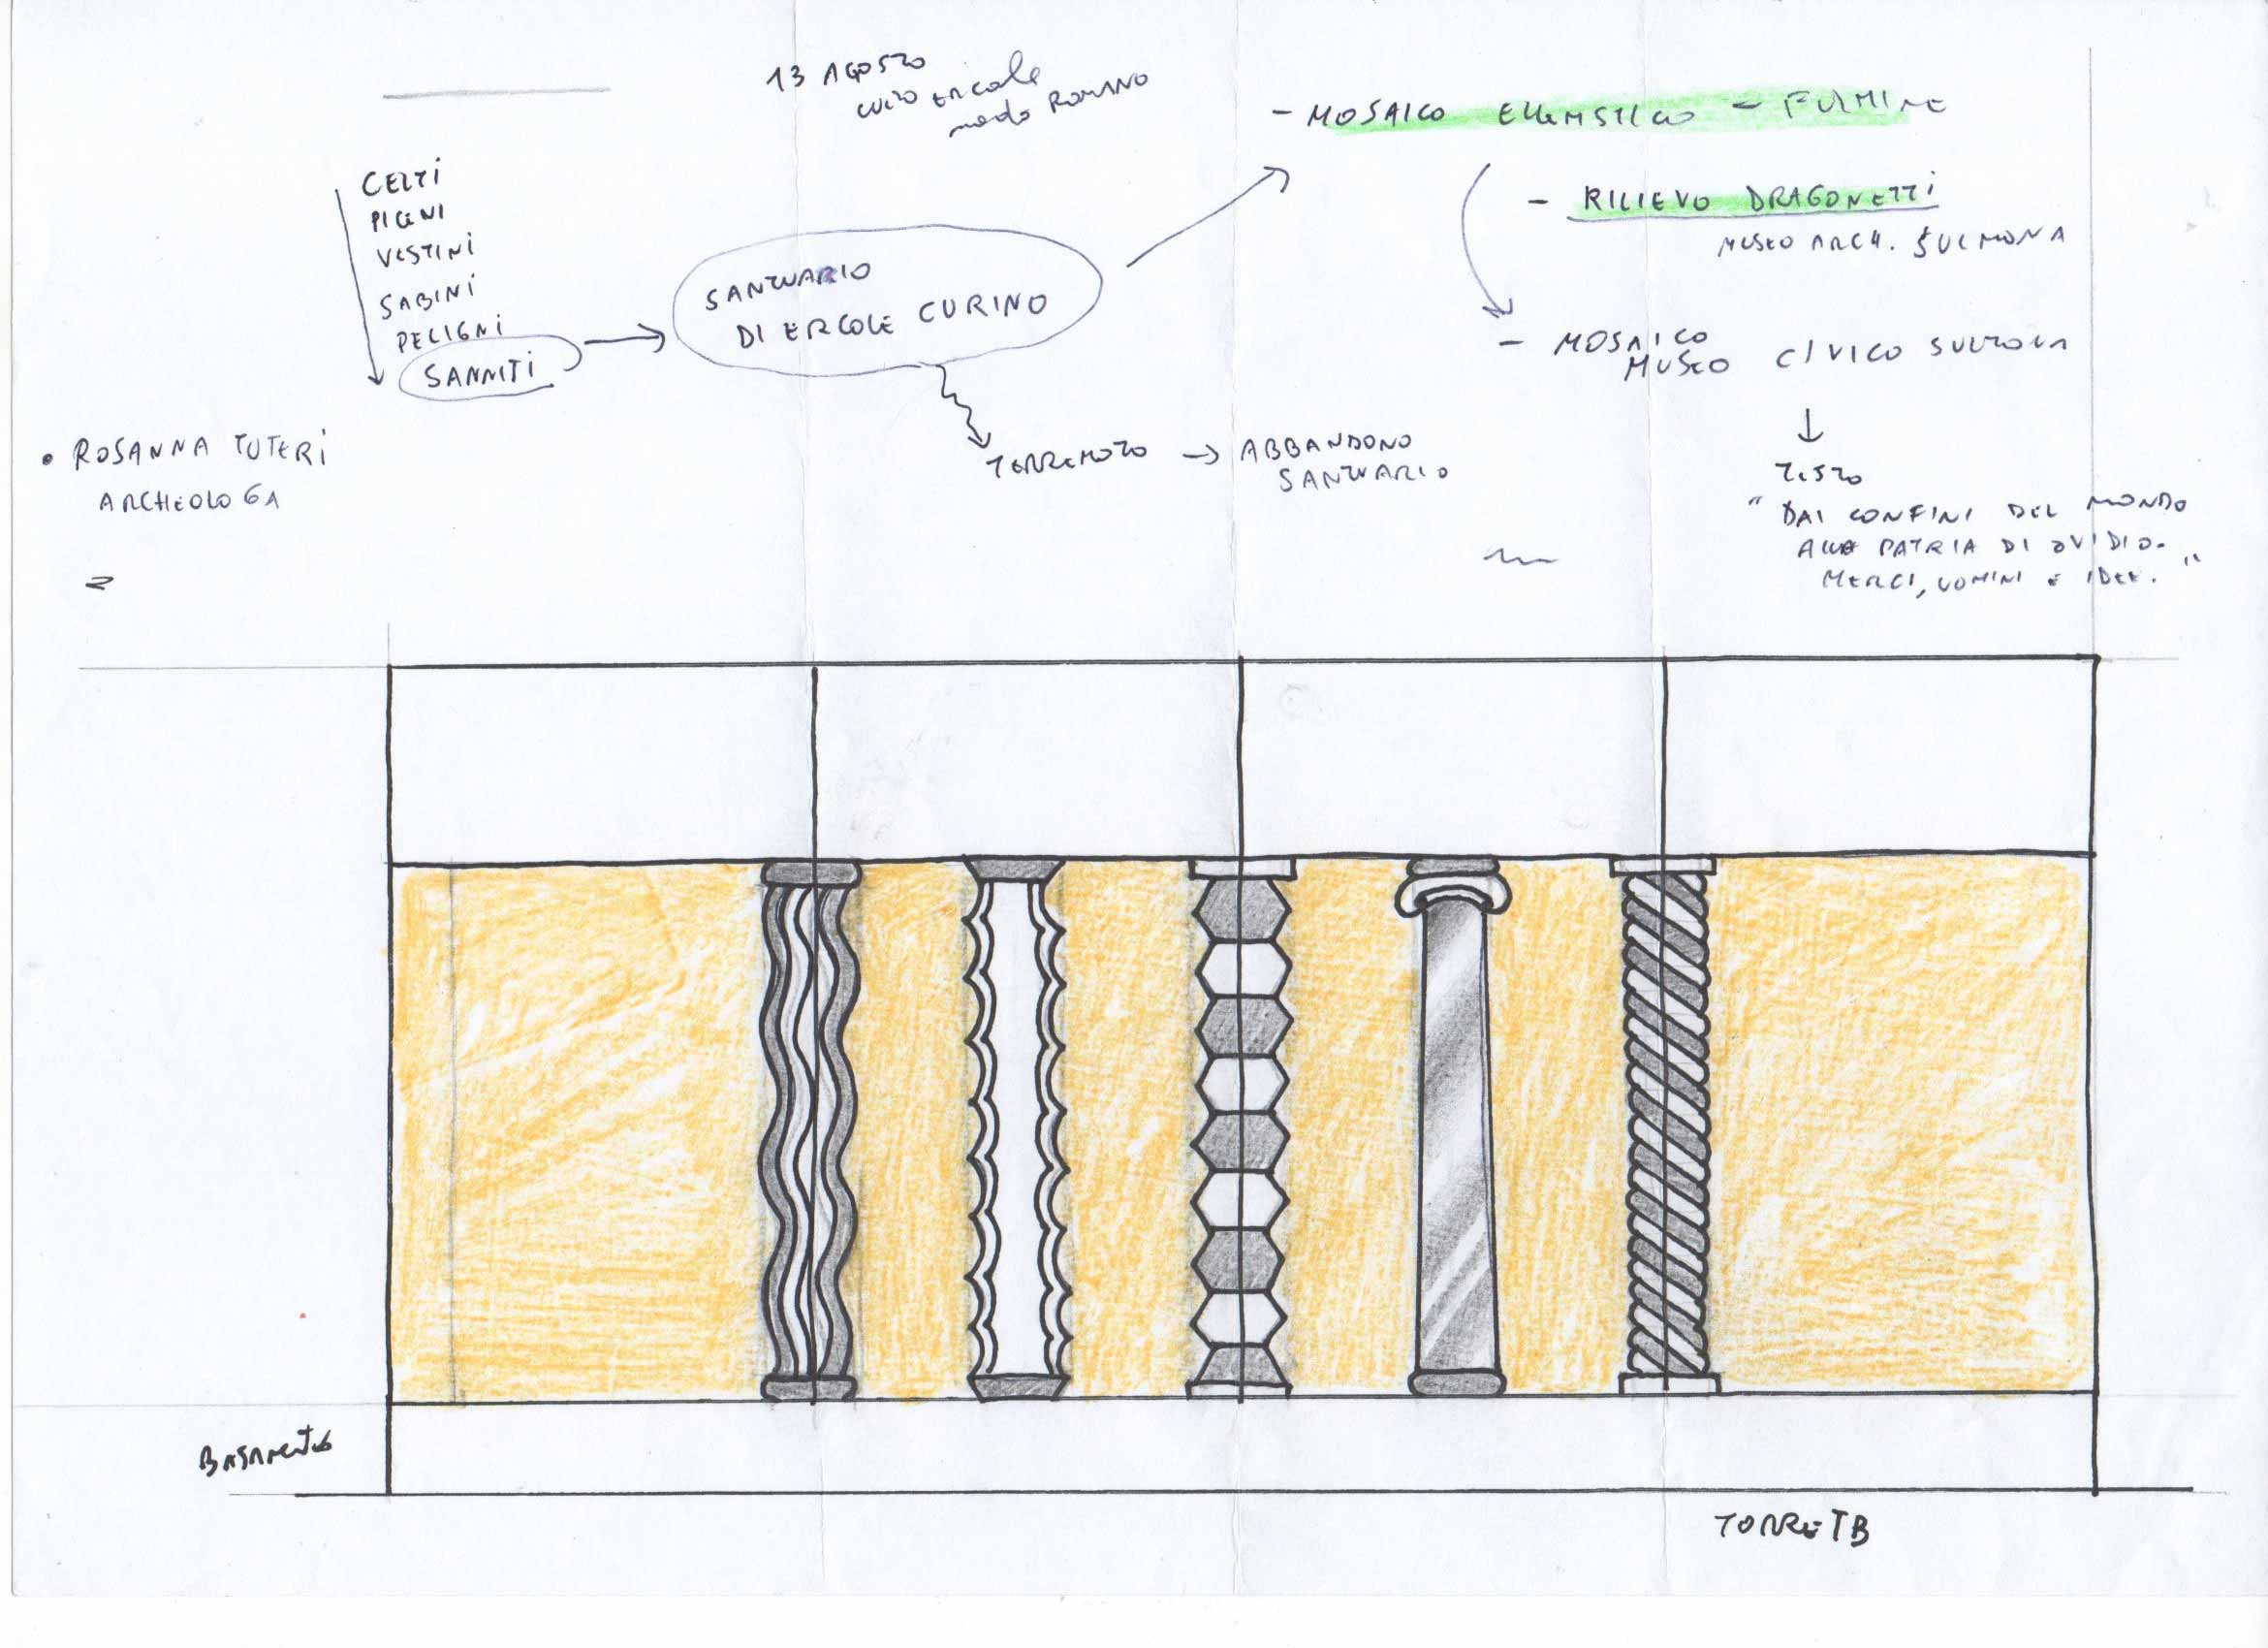 13 AGOSTO
CULTO ERCOLE
modo ROMANO
- MOSAICO ELLENISTICO - FULMINE
- RILIEVO DRAGONETTI
MUSEO ARCH. SULMONA
- MOSAICO
MUSEO CIVICO SULMONA
TESTO
" DAI CONFINI DEL MONDO
ALLA PATRIA DI OVIDIO.
MERCI, UOMINI E IDEE. "
CELTI
PICENI
VESTINI
SABINI
PELIGNI
SANNITI
SANTUARIO
DI ERCOLE CURINO
TERREMOTO → ABBANDONO
SANTUARIO
• ROSANNA TUTERI
ARCHEOLOGA
BASAMENTO
TORRE TB